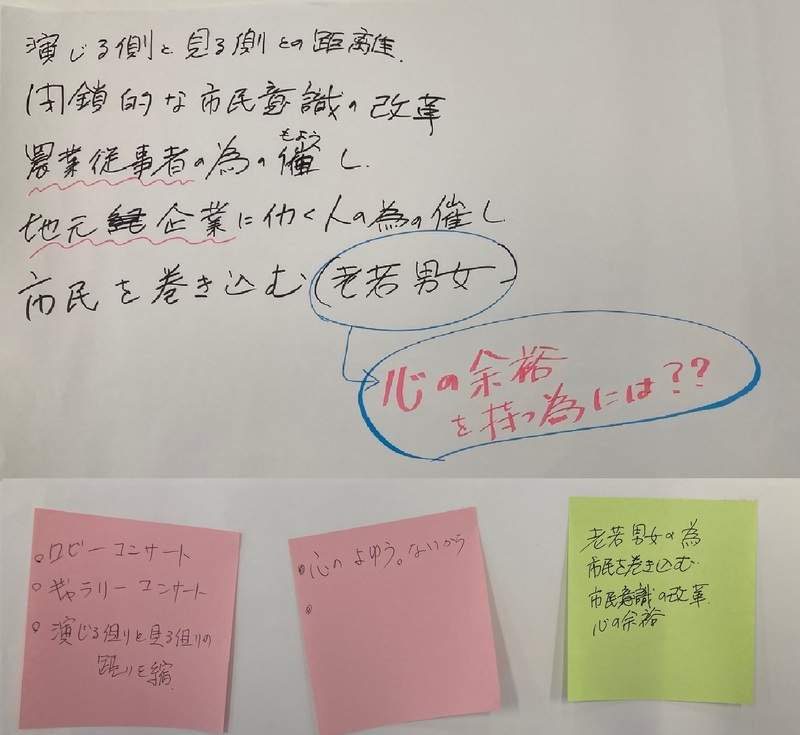 演じる側と見る側との距離
閉鎖的な市民意識の改革
もよう
農業従事者の為の催し
地元企業に働く人の為の催し
市民を巻き込む(老若男女)
心の余裕
を持つ為には??
ロビーコンサート
ギャラリーコンサート
演じる側と見る側の
を縮
心のよゆう。ないから
老若男女の為
市民を巻き込む
市民意識の改革
心の余裕